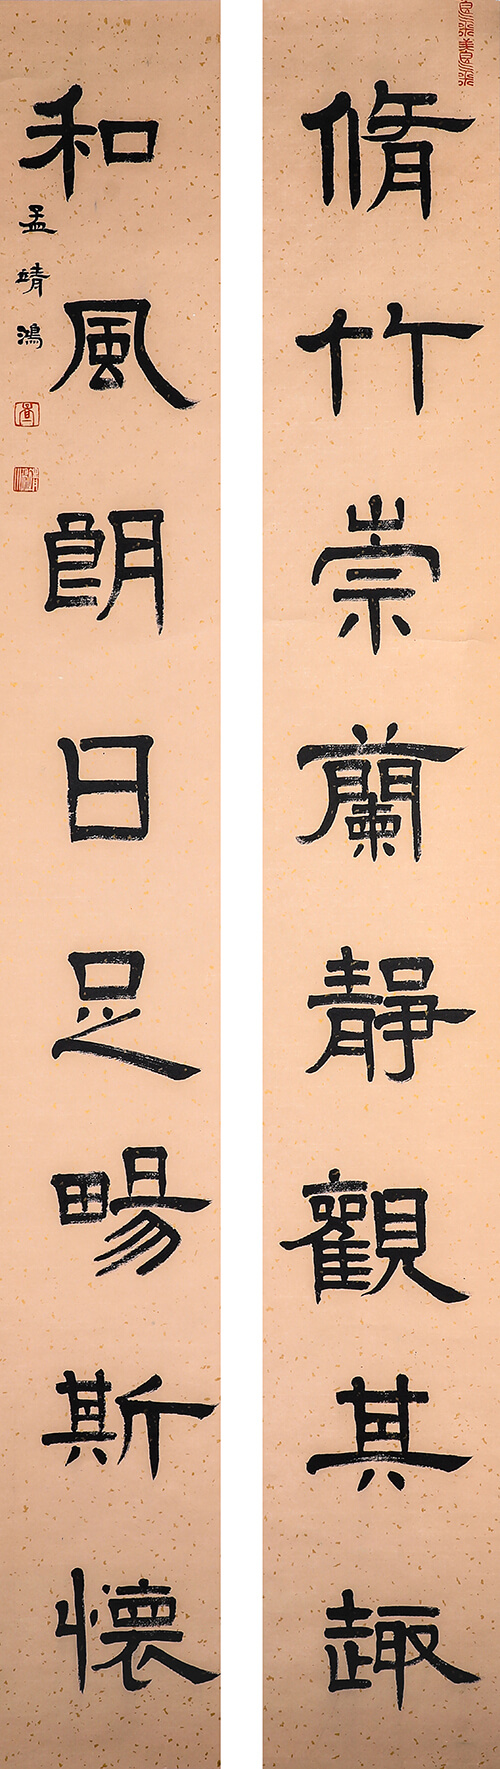 脩竹崇蘭靜觀其趣
和風朗日足暢斯懷
孟靖鴻